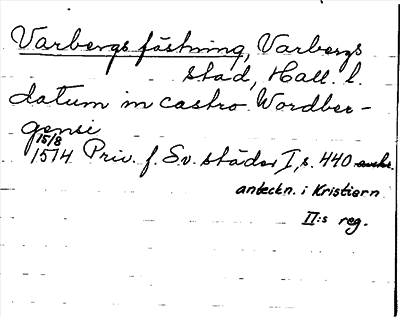 Varbergs fästning, Varbergs
stad, Hall. l.
datum in castro Wordber-
gensi
15/8
1514 Priv. f. Sv. städer I, s. 440
anteckn. i Kristiern
II:s reg.